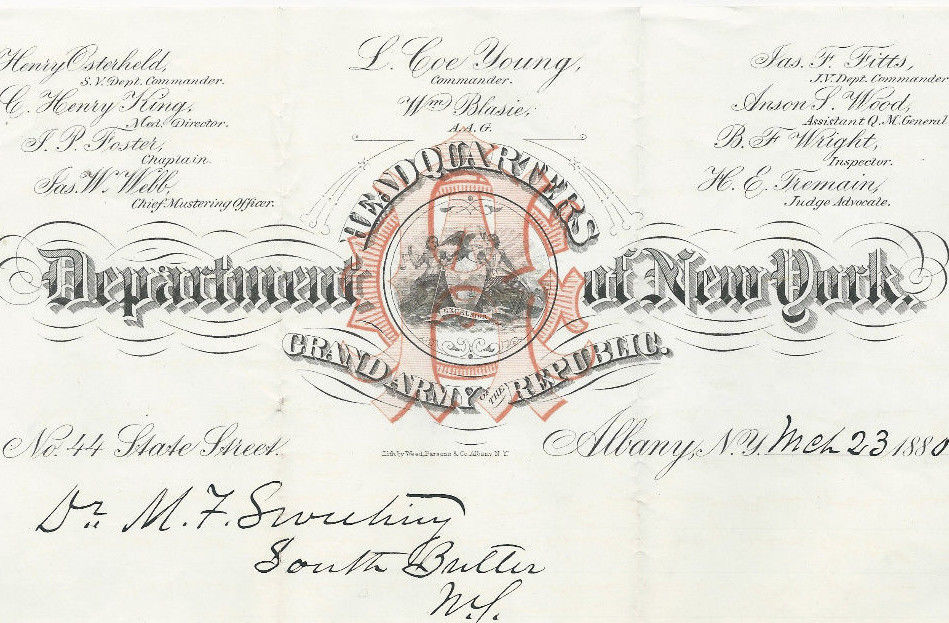 Henry Osterheld,
S.V. Dept. Commander.
C. Henry King,
Med. Director.
J. P. Foster,
Chaplain.
Jas. W. Webb,
Chief Mustering Officer.
L. Coe Young,
Commander.
Wm Blasie,
A.A.G.
Jas. F. Fitts,
J.V. Dept. Commander
Anson S. Wood,
Assistant Q.M. General
B. F Wright,
Inspector.
H. E. Tremain,
Judge Advocate.
HEADQUARTERS
Department of New York.
EXCELSIOR
GRAND ARMY OF THE REPUBLIC.
No. 44 State Street.
Lith by Weed, Parsons & Co. Albany N.Y.
Albany, N.Y. Mch 23 1880
Dr. M. F. Sweeting
South Butler
N.Y.